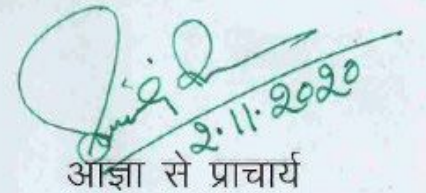 2.11.2020
आज्ञा से प्राचार्य